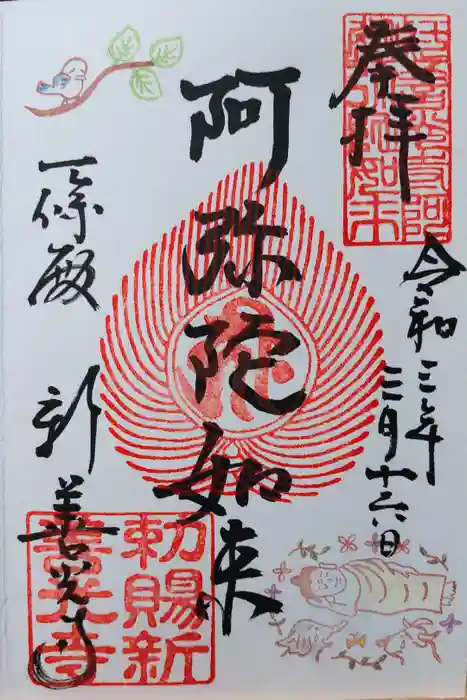 奉拝
令和三年
三月十六日
阿弥陀如来
一條殿
新善光寺
勅賜新
善光寺